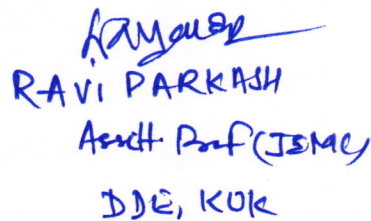 RAVI PARKASH
Asstt. Prof (J&MC)
DDE, KUK